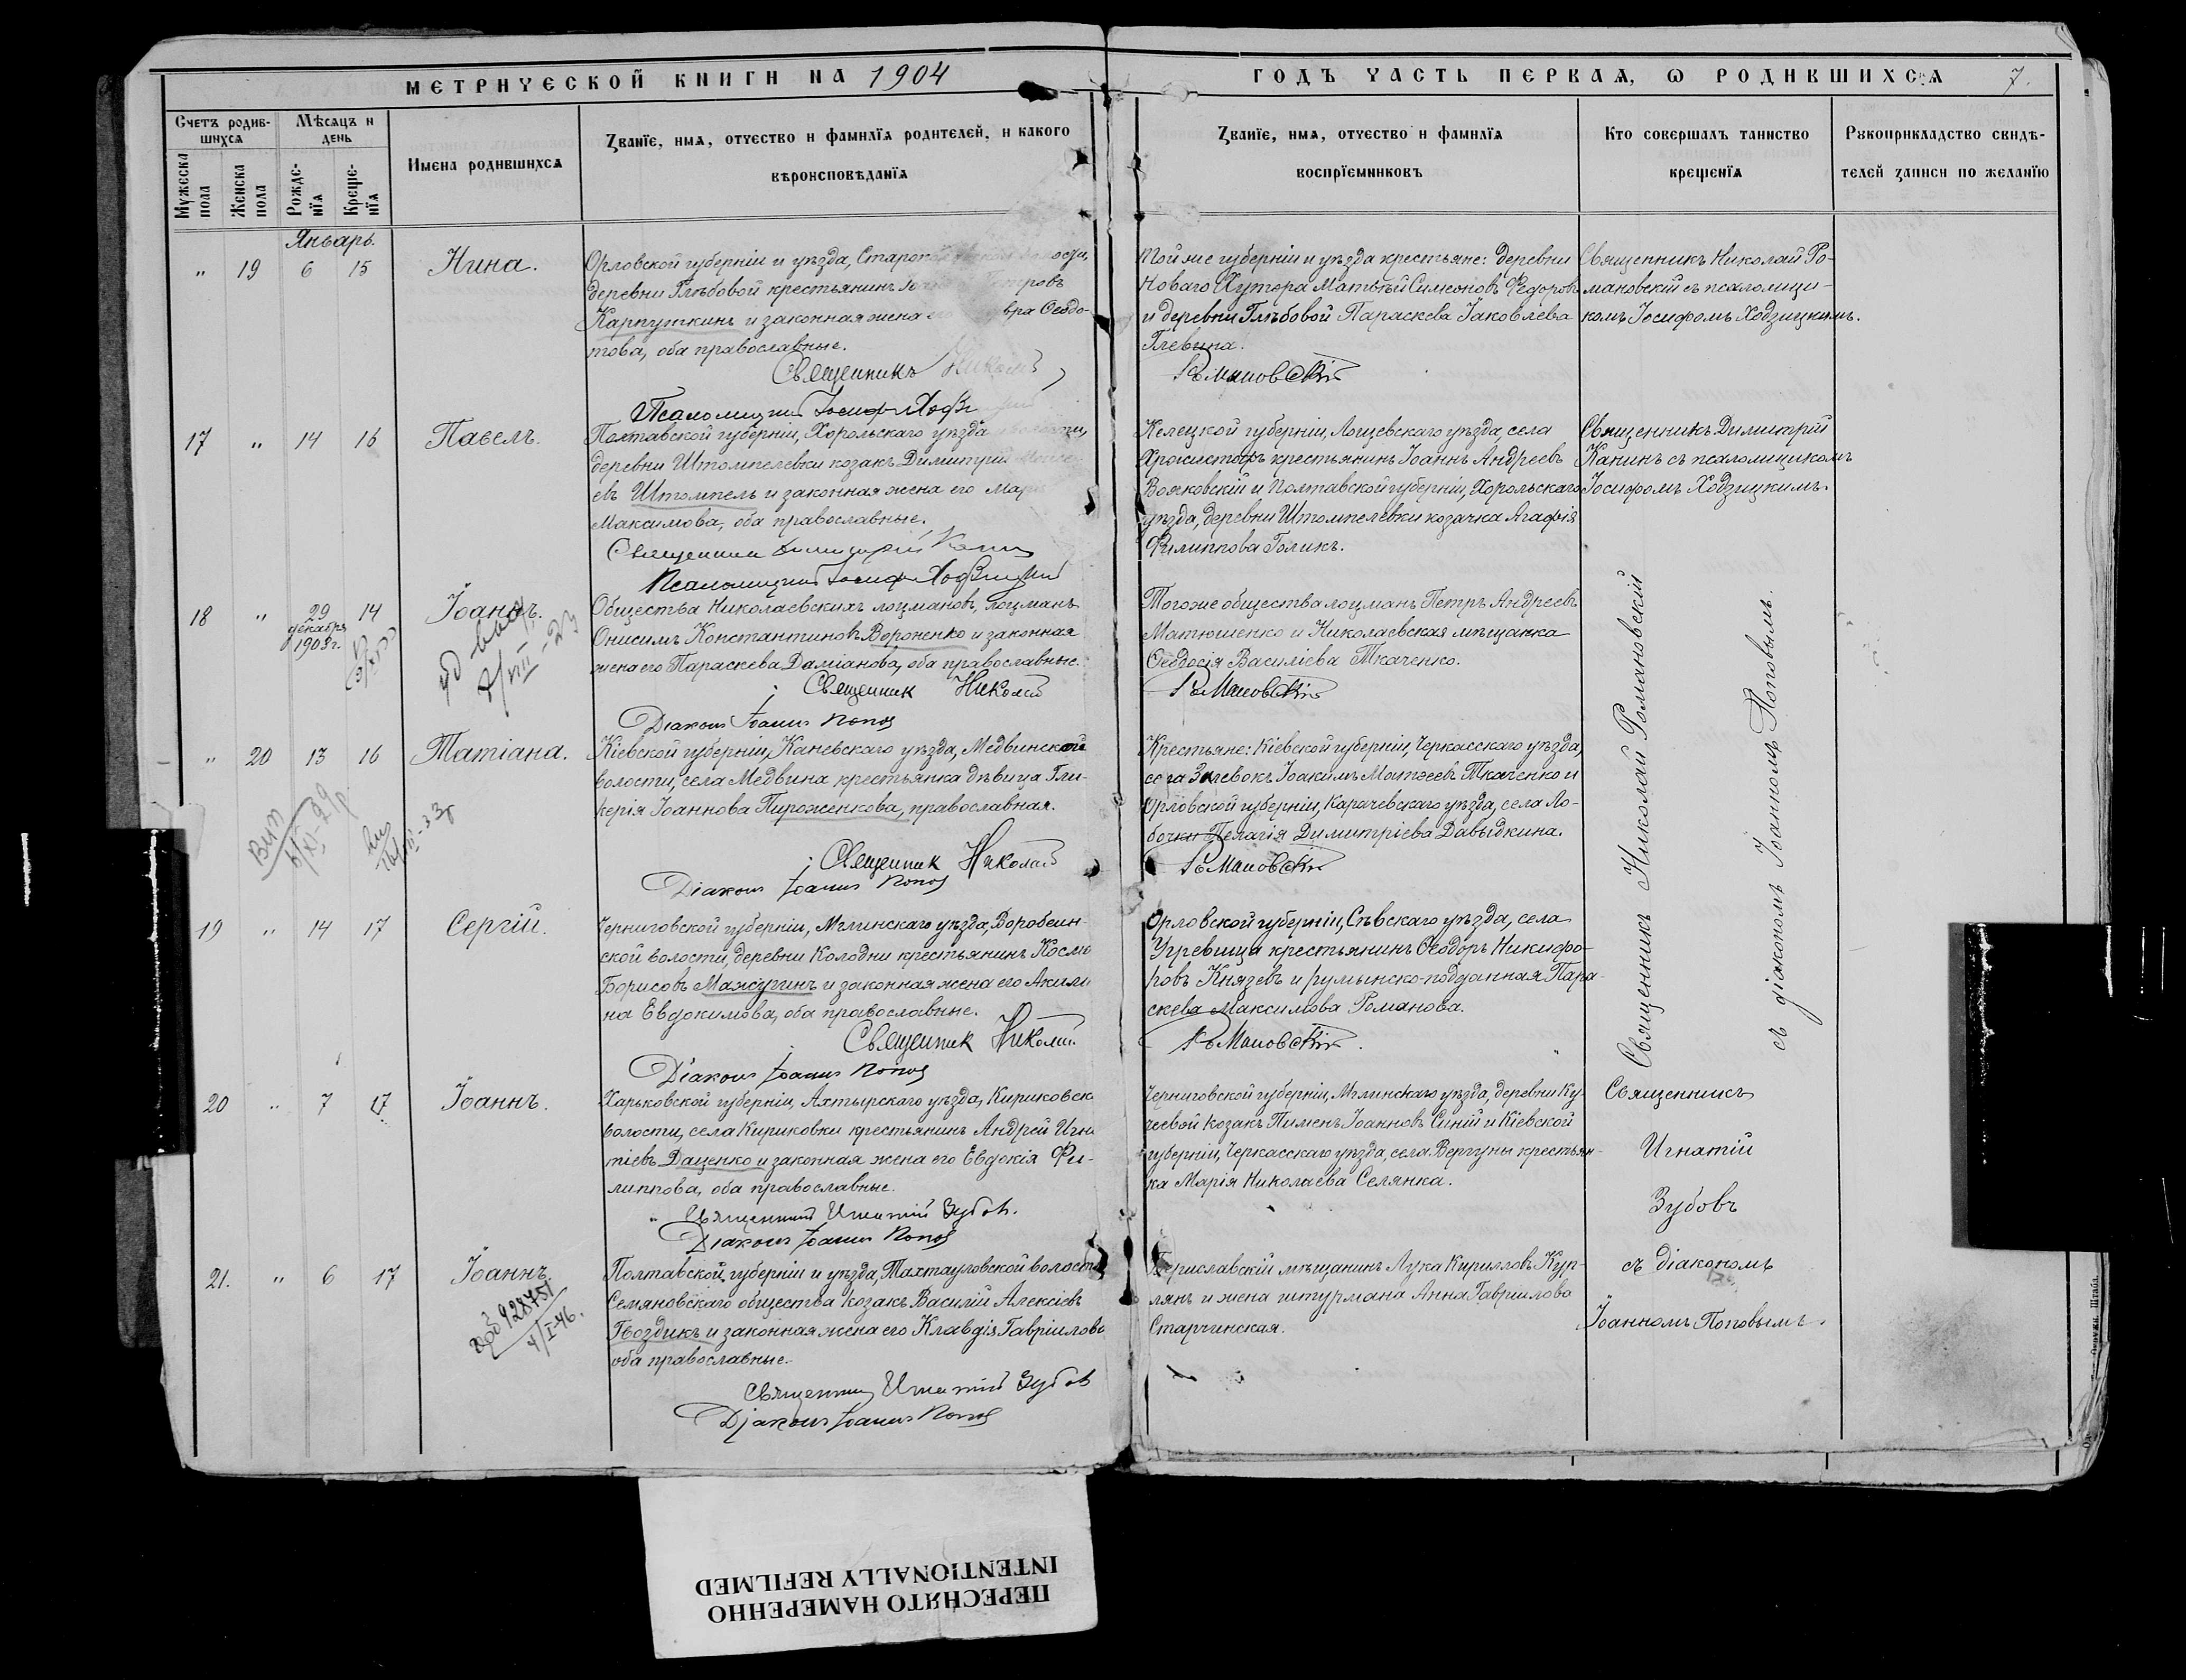 МЕТРИЧЕСКОЙ КНИГИ НА 1904
ГОДЪ ЧАСТЬ ПЕРВАЯ, Ѡ РОДИВШИХСЯ 7.
Счетъ родив-
шихся
Мужеска
пола
Женска
пола
Мѣсяцъ и
день
Рожде-
нїя
Креще-
нїя
Имена родившихся
Званїе, имя, отчество и фамилїя родителей, и какого
вѣроисповѣданїя
Званїе, имя, отчество и фамилїя
воспрїемниковъ
Кто совершалъ таинство
крещенїя
Рукоприкладство свидѣ-
телей записи по желанїю
Январь.
" 19 6 15 Нина.
Орловской губерніи и уѣзда,
деревни Глѣбовой крестьянинъ
Карпушкинъ и законная жена Ѳеодо-
това, оба православные.
Священникъ Николай
Псаломщикъ Іосифъ
Той же губерніи и уѣзда крестьяне: деревни
Новаго Хутора Матѳей Симеоновъ Ѳедоров
и деревни Глѣбовой Параскева Іаковлева
Глевина.
Романовскій
Священникъ Николай Ро-
мановскій съ псаломщи-
комъ Іосифомъ Ходзицкимъ.
17 " 14 16 Павелъ.
Полтавской губерніи, Хорольскаго уѣзда
деревни Штомпелевки козакъ Димитрій
евъ Штомпель и законная жена его Марія
Максимова, оба православные.
Священникъ Димитрій Канинъ
Псаломщикъ Іосифъ Ходзицкій
Келецкой губерніи, уѣзда, села
крестьянинъ Іоаннъ Андреевъ
и Полтавской губерніи, Хорольскаго
уѣзда, деревни Штомпелевки козачка Агафія
Филиппова Голикъ.
Священникъ Димитрій
Канинъ съ псаломщикомъ
Іосифомъ Ходзицкимъ.
18 " 29 14 Іоаннъ.
декабря
1903 г.
Общества Николаевскихъ лоцмановъ, лоцманъ
Онисимъ Константиновъ Вороненко и законная
жена его Параскева Даміанова, оба православные.
Священник Николай
Діаконъ Іоаннъ Поповъ
Того же общества лоцманъ Петръ Андреевъ
Матюшенко и Николаевская мѣщанка
Ѳеодосія Василіева Ткаченко.
Романовскій
Священникъ Николай Романовскій
съ діакономъ Іоанномъ Поповымъ.
" 20 13 16 Татіана.
Кіевской губерніи, Каневскаго уѣзда, Медвинской
волости, села Медвина крестьянка дѣвица Гли-
керія Іоаннова Пироженкова, православная.
Священник Николай
Діаконъ Іоаннъ Поповъ
Крестьяне: Кіевской губерніи, Черкасскаго уѣзда,
села Іоакимъ Матѳеевъ Ткаченко и
Орловской губерніи, Карачевскаго уѣзда, села Ло-
бочки Пелагія Димитріева Давыдкина.
Романовскій
19 " 14 17 Сергій.
Черниговской губерніи, Мглинскаго уѣзда, Воробеин-
ской волости, деревни Колодни крестьянинъ Косма
Борисовъ Мажугинъ и законная жена его Акили
на Евдокимова, оба православные.
Священник Николай
Діаконъ Іоаннъ Поповъ
Орловской губерніи, Сѣвскаго уѣзда, села
Угревища крестьянинъ Ѳеодоръ Никифо-
ровъ Князевъ и румынско-подданная Пара-
скева Максимова Романова.
Романовскій
20 " 7 17 Іоаннъ.
Харьковской губерніи, Ахтырскаго уѣзда, Кириковск
волости, села Кириковки крестьянинъ Андрей Игна
тіевъ Даценко и законная жена его Евдокія Фи-
липпова, оба православные.
Священникъ Игнатій Зубовъ.
Діаконъ Іоаннъ Поповъ
Черниговской губерніи, Мглинскаго уѣзда, деревни Ку-
чевой козакъ Пименъ Іоанновъ Синій и Кіевской
губерніи, Черкасскаго уѣзда, села Вергуны крестьян-
ка Марія Николаева Селянка.
Священникъ
Игнатій
Зубовъ
съ діакономъ
Іоанномъ Поповымъ.
21. " 6 17 Іоаннъ
928751
4/I-46.
Полтавской губерніи и уѣзда, Тахтауловской волости
Семяновскаго общества козакъ Василій Алексіевъ
Гвоздикъ и законная жена его Клавдія Гавріилова
оба православные.
Священникъ Игнатій Зубовъ
Діаконъ Іоаннъ Поповъ
Бериславскій мѣщанинъ Лука Кирилловъ Кур-
лянъ и жена штурмана Анна Гавріилова
Старчинская.
ПЕРЕСНЯТО НАМЕРЕННО
INTENTIONALLY REFILMED